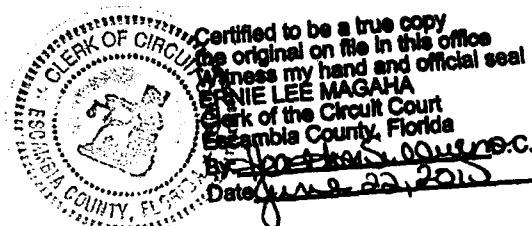 CLERK OF CIRCUIT
ESCAMBIA COUNTY, FLORIDA
Certified to be a true copy
the original on file in this office
Witness my hand and official seal
ERNIE LEE MAGAHA
Clerk of the Circuit Court
Escambia County, Florida
By: D.C.
Date June 22, 2010